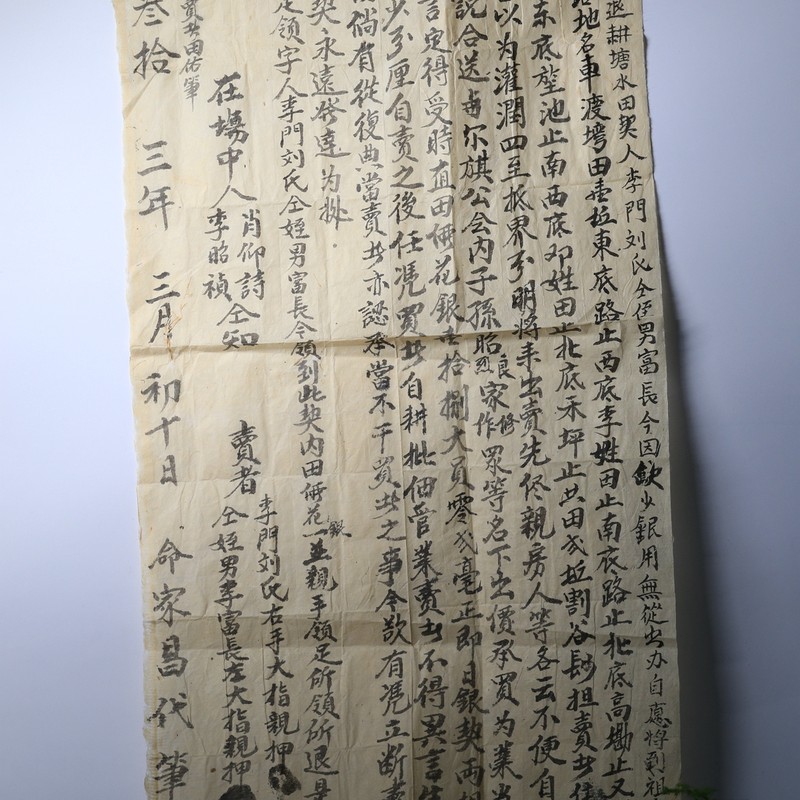 退耕塘水田契人李門刘氏仝侄男富長今因缺少銀用無從出办自愿将到祖
地名車渡塆田壹坵東底路止西底李姓田止南底路止北底高墈止又
东底垄池止南西底邓姓田止北底禾坪止共田弍坵割谷叁担賣者
以为灌潤四至抵界分明将来出賣先侭親房人等各云不便自
説合送与尔旗公会内子孫昭良烈家修作眾等名下出價承買为業当
言定得受時值田価花銀壹拾捌大員零弍毫正即日銀契両相
少分厘自賣之後任凭買者自耕批佃管業賣者不得異言生
倘有從復典當賣者亦認承當不干買者之事今欲有凭立断賣
契永遠發達为拠
足領字人李門刘氏仝姪男富長今領到此契内田価花銀一並親手領足所領所退是
在塲中人 肖仰詩 李昭禎 仝知
賣者 李門刘氏右手大指親押 仝姪男李富長左大指親押
賣者田佑筆
叁拾三年三月初十日 命家昌代筆